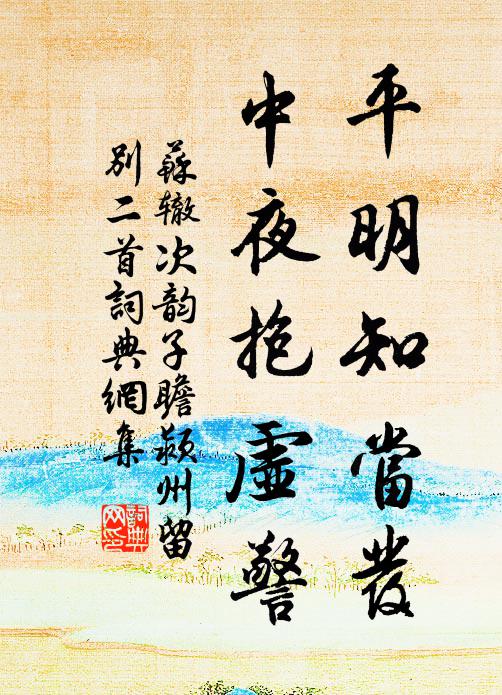 平明知當發
中夜抱虛警
蘇辙次韵子瞻潁州留
別二首詞典網集